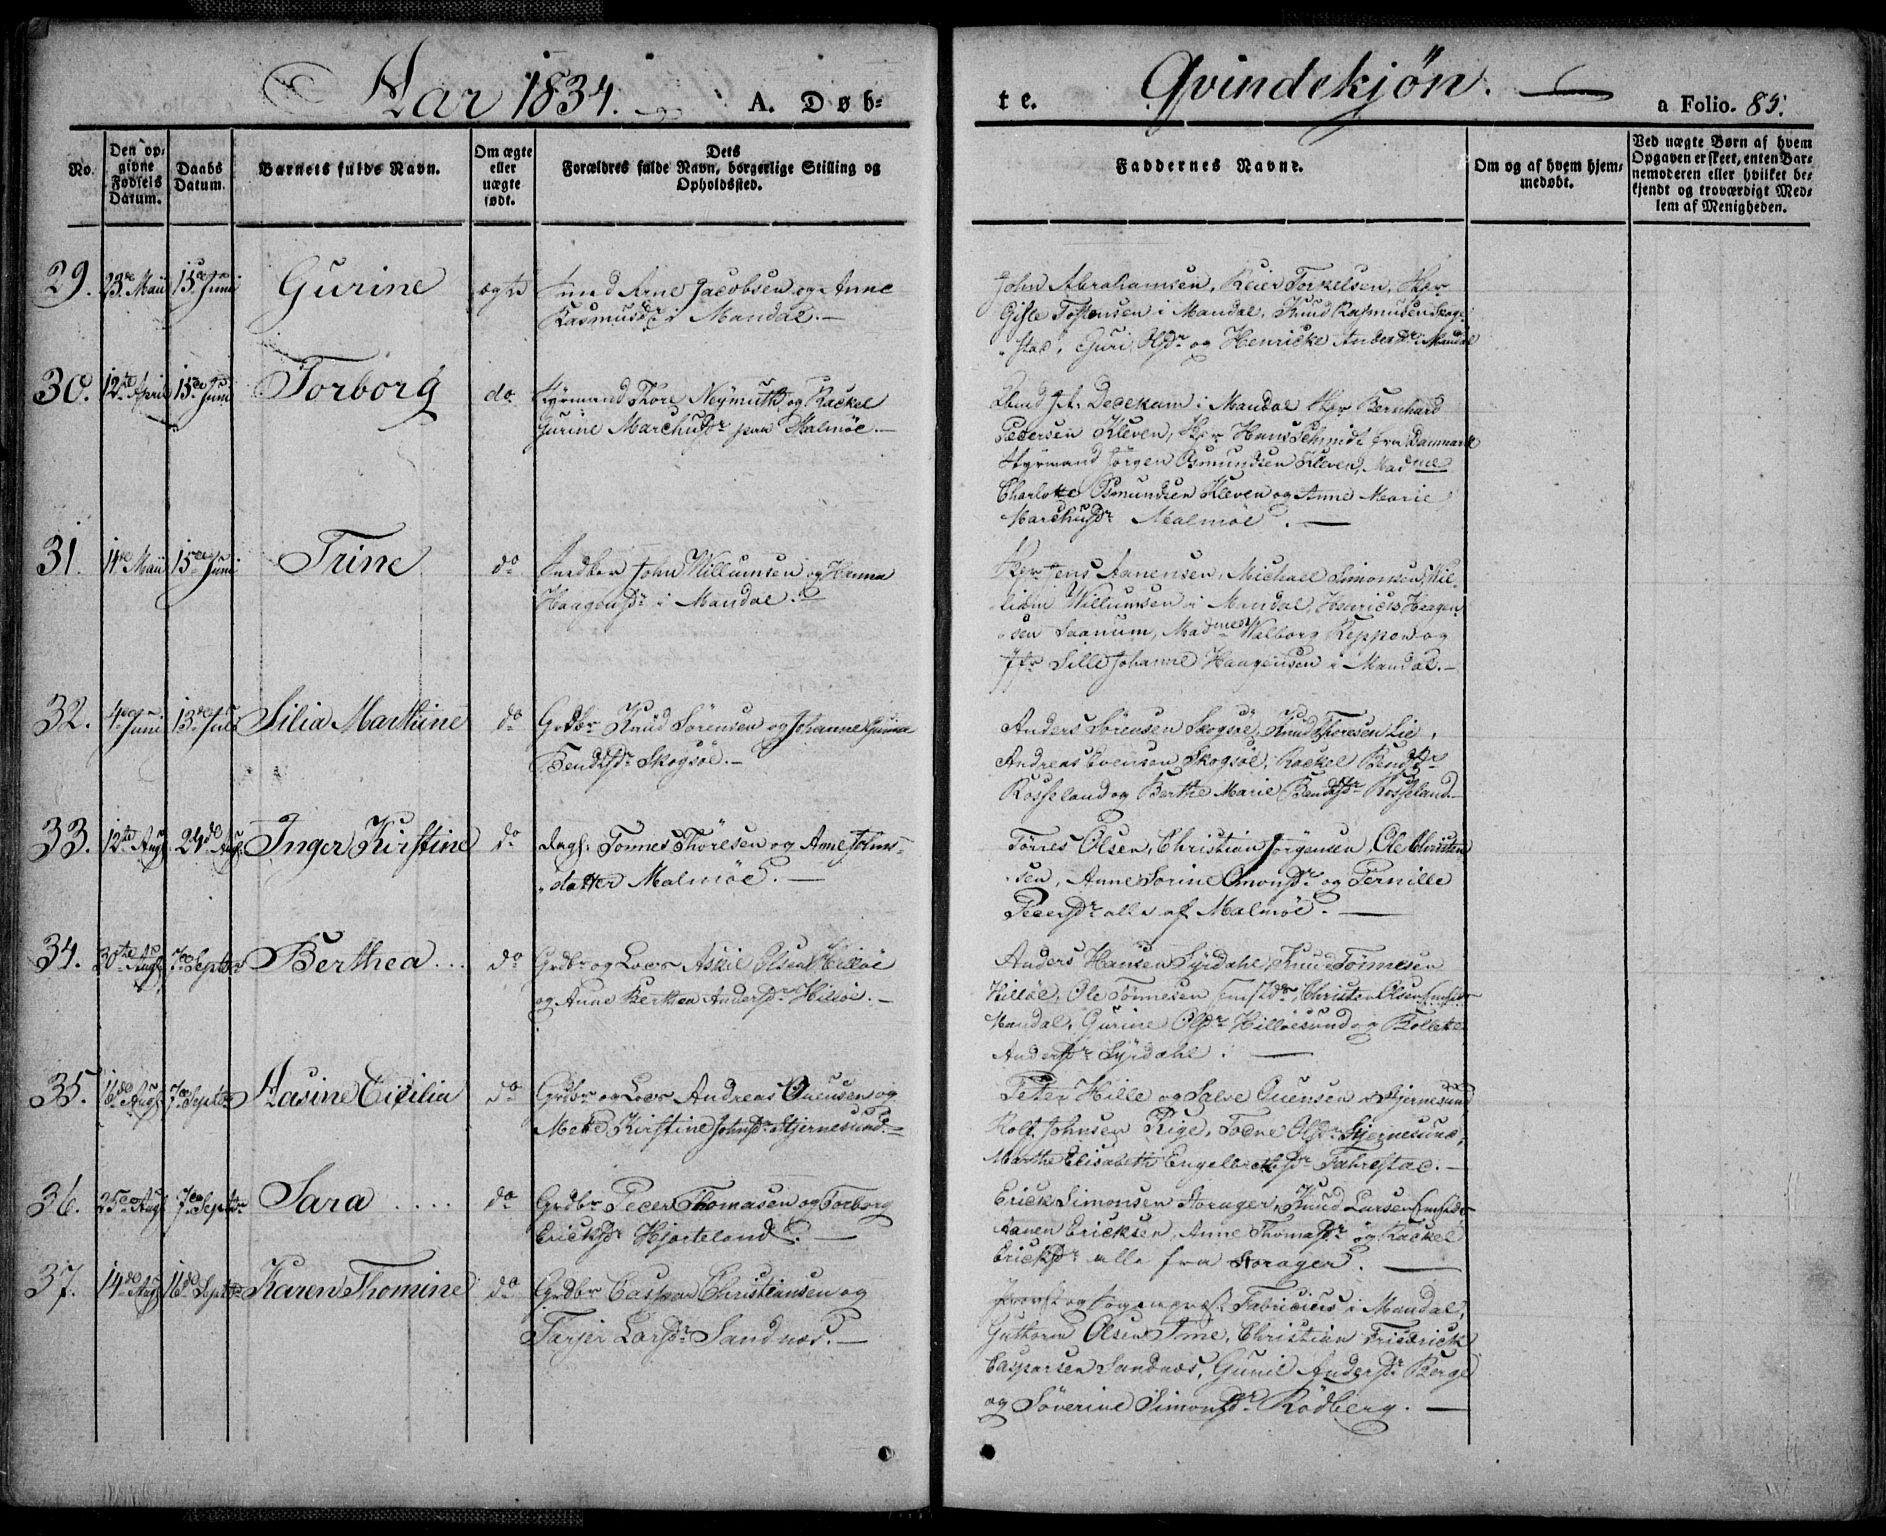 Aar 1834. A. Døb-
te. Qvindekjøn. a Folio. 85.
No.
Den op-
givne
Fødsels
Datum.
Daabs
Datum.
Barnets fulde Navn.
Om ægte
eller
uægte
født.
Dets
Forældres fulde Navn, borgerlige Stilling og
Opholdssted.
Faddernes Navne.
Om og af hvem hjem-
medøbt.
Ved uægte Børn af hvem
Opgaven er skeet, enten Bar-
nemoderen eller hvilket be-
kjendt og troværdigt Med-
lem af Menigheden.
29. 23de Maii 15de Juni Gurine ægte Arne Jacobsen og Anne
Rasmusdr i Mandal.
John Abrahamsen, Reier Torkelsen,
Gisle Tostensen i Mandal, Knud Rasmusen Skoge-
stad, Guri Olsdr og Henricke Andersdr i Mandal
30. 12te April 15de Juni Torborg do Styrmand Thore Neymuth og Rackel
Gurine Marchusdr paa Malmøe.
Decekam i Mandal Skpr Bernhard
Pedersen Kleven, Skpr Hans Schmidt fra Danmark
Styrmand Jørgen Osmundsen Kleven, Madme
Charlotte Osmundsen Kleven og Anne Marie
Marchusdr Malmøe.
31. 11te Maii 15de Juni Trine do John Willumsen og Hanna
Haagensdr i Mandal.
Skpr Jens Aanensen, Michael Simonsen, Wil-
liam Willumsen i Mandal, Henrich Haagen-
sen Saanum, Madmes Walborg Reppen og
Jfr Sille Johanne Haagensen i Mandal.
32. 4de Juni 13de Juli Silia Marthine do Grdbr Knud Sørensen og Johanne Gurine
Bendtsdr Skogsøe.
Anders Sørensen Skogsøe, Knud Thoresen Lie,
Andreas Evensen Skogsøe, Rackel Bendtsdr
Rosseland og Berthe Marie Bendtsdr Rosseland
33. 12te Augs 24de Augs. Inger Kirstine do Dags. Tønnes Thøresen og Anne Johns-
datter Malmøe.
Tørres Olsen, Christian Jørgensen, Ole Christen-
sen, Anne Sorine Omonsdr og Pernille
Pedersdr alle af Malmøe.
34. 30te Augs 7de Septbr Berthea do Grdbr og Lods Askil Olsen Hilløe
og Anne Berthea Andersdr Hilløe.
Anders Hansen Syrdahl, Knud Tønnesen
Hilløe, Ole Tønnesen , Christen Olsen
Mandal, Gurine Olsdr Hilløesund og Bollette
Andersdr Syrdahl.
35. 16de Augs 7de Septbr Aasine Cicilia do Grdbr og Lods Andreas Ouensen og
Mette Kirstine Johnsdr Stjernesund.
Peter Hille og Salve Ouensen Stjernesund
Rolf Johnsen Rige, Tobne Olsdr Stjernesund,
Marthe Elisabeth Engelbrechtsdr Fahrestad.
36. 25de Augs 7de Septbr Sara do Grdbr Peder Thomasen og Torborg
Ericksdr Hjorteland.
Erick Simonsen Storager, Knud Larsen
Aanen Ericksen, Anne Thomasdr og Rackel
Ericksdr alle fra Storager.
37. 14de Augs 16de Septbr Karen Thomine do Grdbr Caspar Christiansen og
Tarjer Larsdr Sandnæs.
Provst og Sogneprest Fabricius i Mandal,
Guthorm Olsen Ime, Christian Friedrick
Caspersen Sandnæs, Gunil Andersdr Berge
og Søverine Simonsdr Rødberg.